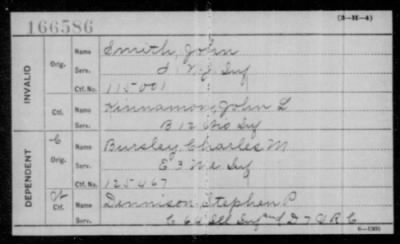 166586
(3-M-4)
INVALID
Orig.
Name Smith, John
Serv. I N.J. Inf
Ctf. No. 115001
Ctf.
Name Kinnamon, John L
Serv. B 12 Mo Inf
DEPENDENT
C
Orig.
Name Bursley, Charles M
Serv. E 3 Me Inf
Ctf. No. 125467
Ctf.
Name Dennison, Stephen P
Serv. C 66 Ill Inf D 7 V R C
6-1305